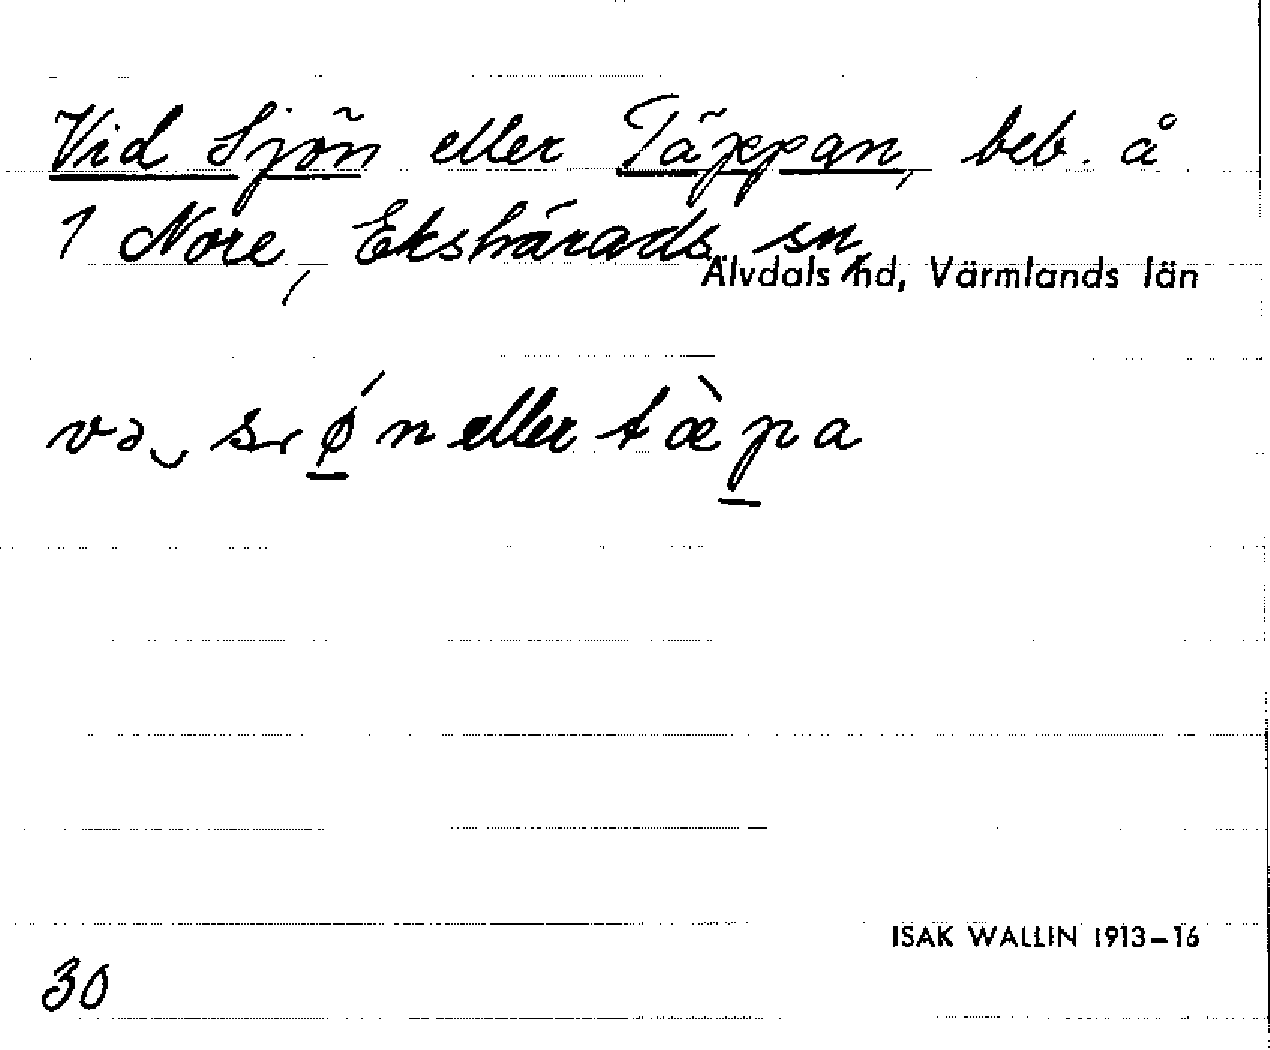 Vid Sjön eller Täppan, beb. å
1 Nore, Ekshärads sn,
Älvdals hd, Värmlands län
və‿ sɾǿn eller tæ̀pa
ISAK WALLIN 1913–16
30